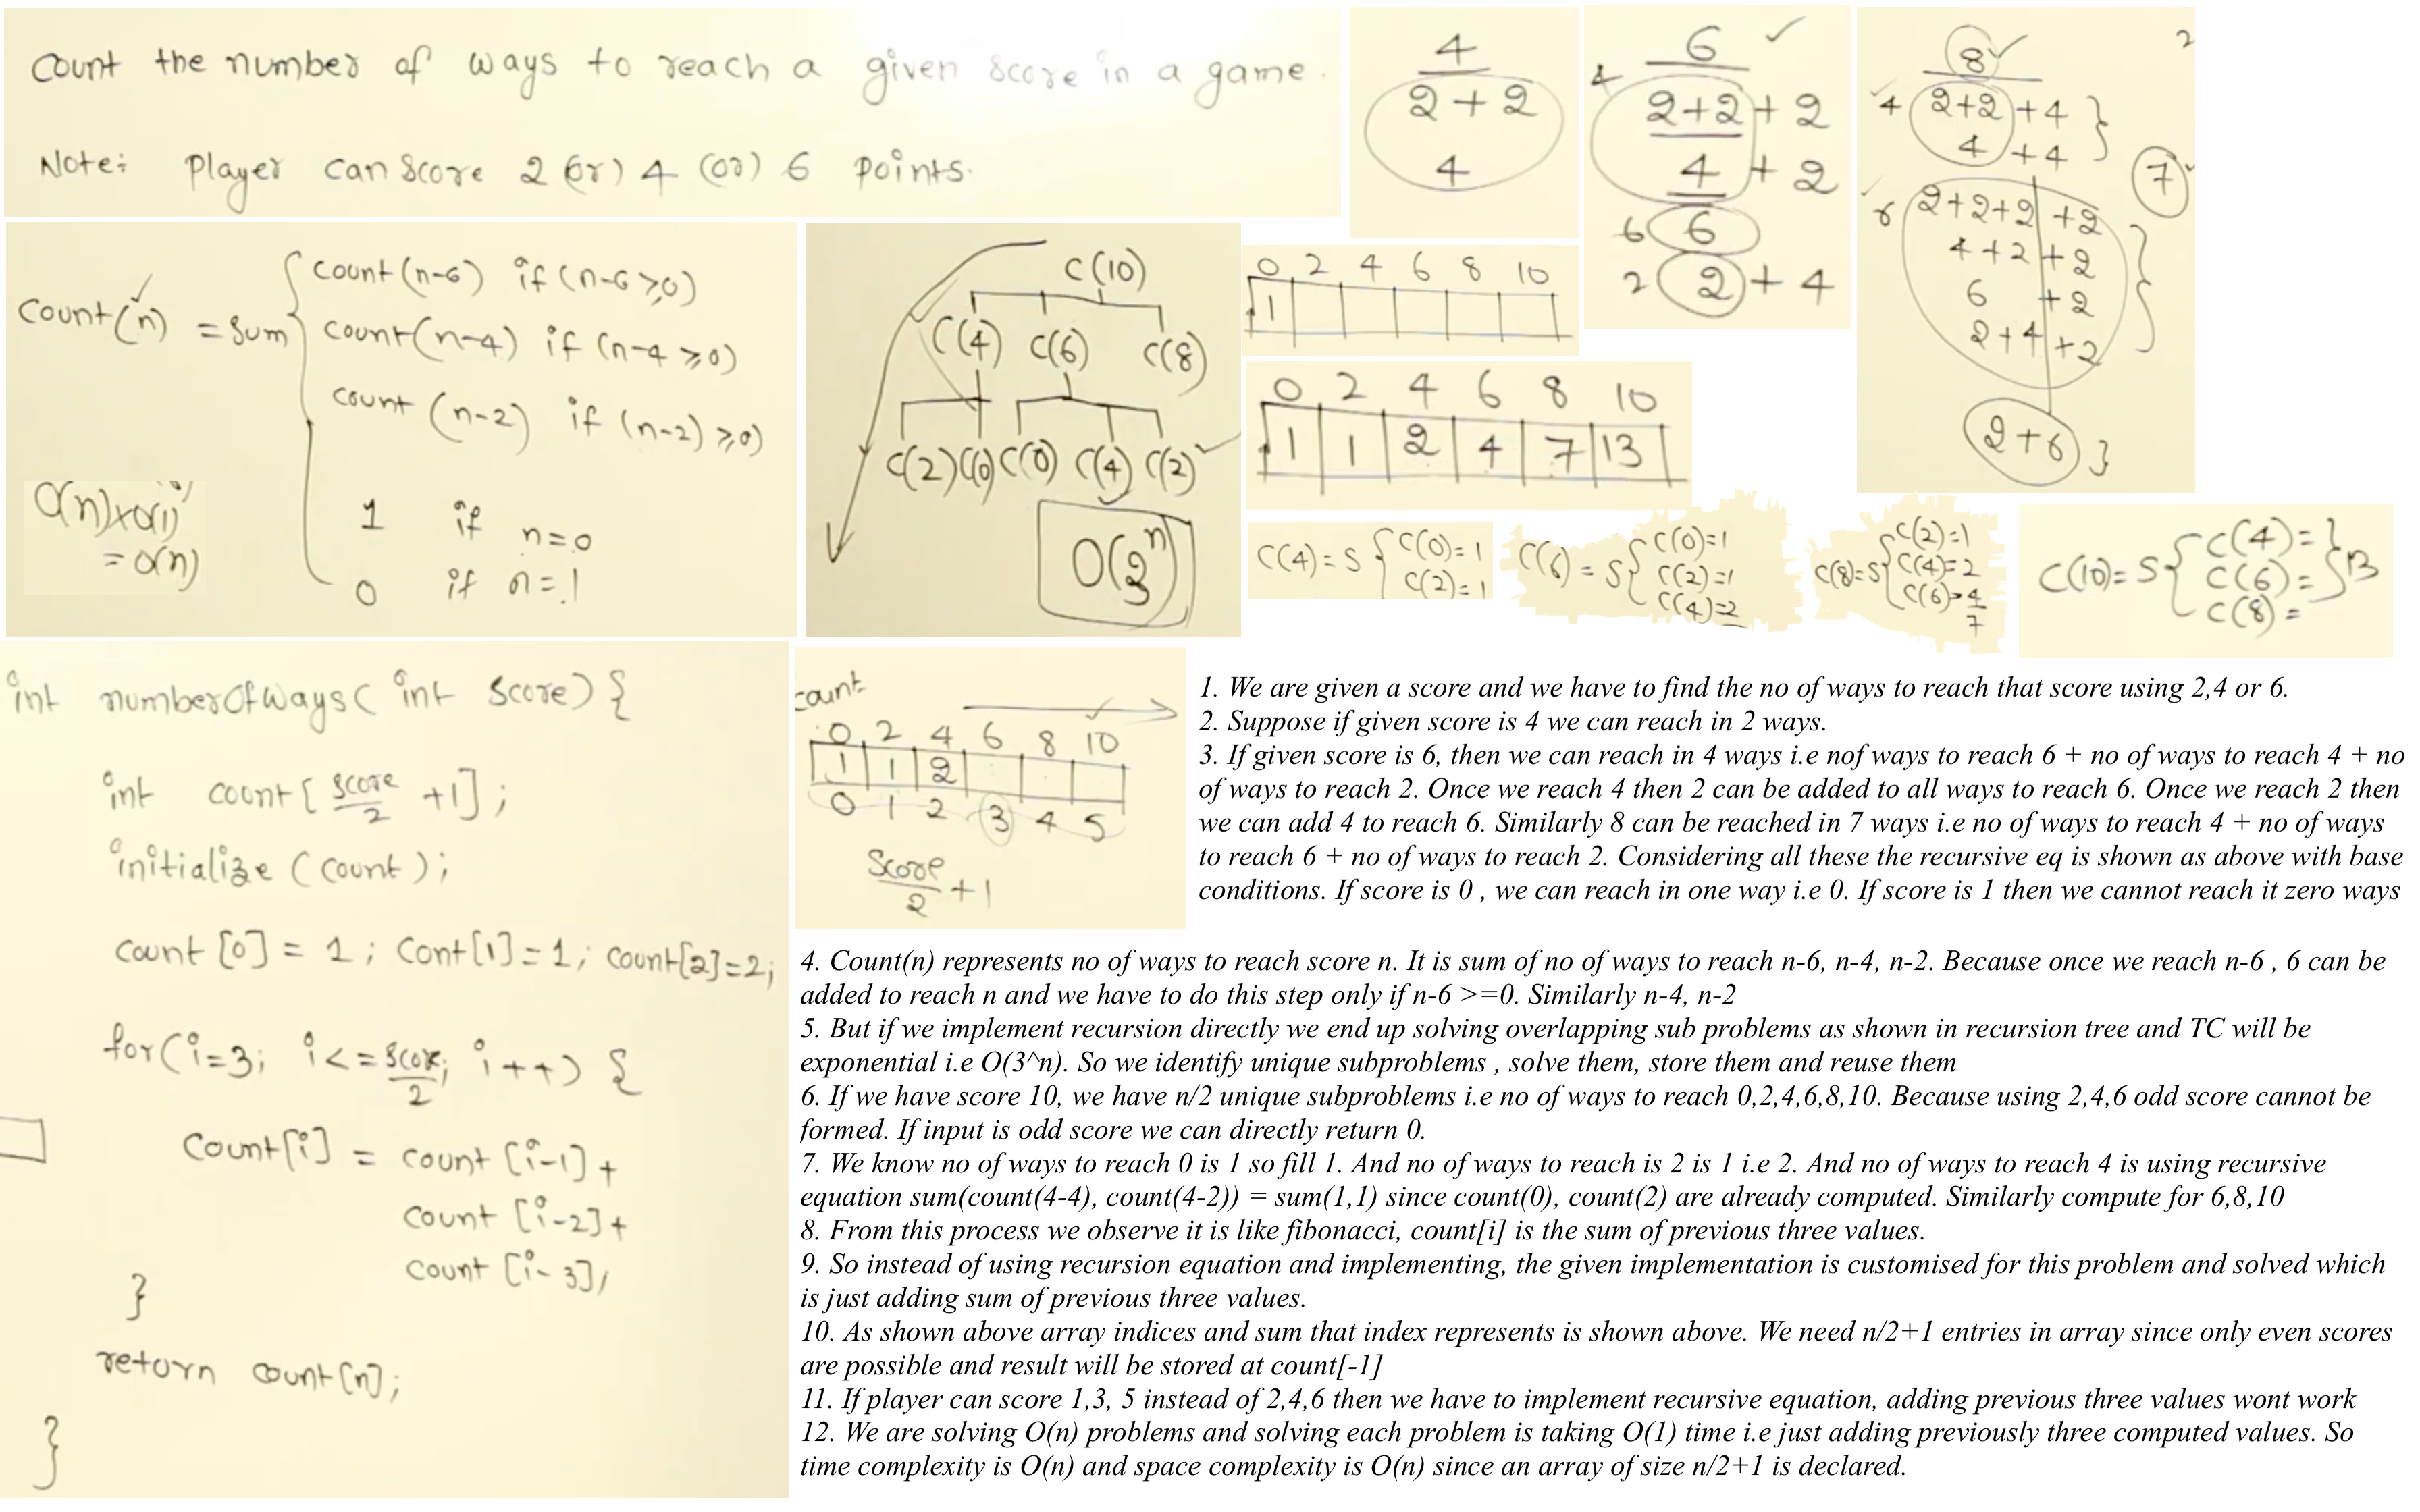 Count the number of ways to reach a given score in a game.
Note: Player can score 2 (or) 4 (or) 6 points.
4
2 + 2
4
6 ✓
4 2+2 + 2
4 + 2
6 6
2 2 + 4
8 ✓
2
4 2+2 + 4 }
4 + 4
7
6 2+2+2 + 2
4 + 2 + 2
6 + 2
2 + 4 + 2
2+6 }
count(n) = sum
count(n-6) if (n-6 ≥ 0)
count(n-4) if (n-4 ≥ 0)
count (n-2) if (n-2) ≥ 0)
1 if n=0
0 if n=1
O(n)×O(1)
= O(n)
C(10)
C(4) C(6) C(8)
C(2) C(0) C(0) C(4) C(2)
O(3^n)
0 2 4 6 8 10
1
0 2 4 6 8 10
1 1 2 4 7 13
C(4) = S { C(0)=1
C(2)=1
C(6) = S { C(0)=1
C(2)=1
C(4)=2
C(8)=S { C(2)=1
C(4)=2
C(6)=4
7
C(10)= S { C(4)= } 13
C(6)=
C(8)=
int numberOfways( int score) {
int count[ score/2 +1] ;
initialize (count);
count [0] = 1 ; cont[1]=1; count[2]=2;
for(i=3; i<= score/2; i++) {
count[i] = count [i-1] +
count [i-2] +
count [i-3];
}
return count[n];
}
count
0 2 4 6 8 10
1 1 2
0 1 2 3 4 5
score/2 +1
1. We are given a score and we have to find the no of ways to reach that score using 2,4 or 6.
2. Suppose if given score is 4 we can reach in 2 ways.
3. If given score is 6, then we can reach in 4 ways i.e nof ways to reach 6 + no of ways to reach 4 + no
of ways to reach 2. Once we reach 4 then 2 can be added to all ways to reach 6. Once we reach 2 then
we can add 4 to reach 6. Similarly 8 can be reached in 7 ways i.e no of ways to reach 4 + no of ways
to reach 6 + no of ways to reach 2. Considering all these the recursive eq is shown as above with base
conditions. If score is 0 , we can reach in one way i.e 0. If score is 1 then we cannot reach it zero ways
4. Count(n) represents no of ways to reach score n. It is sum of no of ways to reach n-6, n-4, n-2. Because once we reach n-6 , 6 can be
added to reach n and we have to do this step only if n-6 >=0. Similarly n-4, n-2
5. But if we implement recursion directly we end up solving overlapping sub problems as shown in recursion tree and TC will be
exponential i.e O(3^n). So we identify unique subproblems , solve them, store them and reuse them
6. If we have score 10, we have n/2 unique subproblems i.e no of ways to reach 0,2,4,6,8,10. Because using 2,4,6 odd score cannot be
formed. If input is odd score we can directly return 0.
7. We know no of ways to reach 0 is 1 so fill 1. And no of ways to reach is 2 is 1 i.e 2. And no of ways to reach 4 is using recursive
equation sum(count(4-4), count(4-2)) = sum(1,1) since count(0), count(2) are already computed. Similarly compute for 6,8,10
8. From this process we observe it is like fibonacci, count[i] is the sum of previous three values.
9. So instead of using recursion equation and implementing, the given implementation is customised for this problem and solved which
is just adding sum of previous three values.
10. As shown above array indices and sum that index represents is shown above. We need n/2+1 entries in array since only even scores
are possible and result will be stored at count[-1]
11. If player can score 1,3, 5 instead of 2,4,6 then we have to implement recursive equation, adding previous three values wont work
12. We are solving O(n) problems and solving each problem is taking O(1) time i.e just adding previously three computed values. So
time complexity is O(n) and space complexity is O(n) since an array of size n/2+1 is declared.